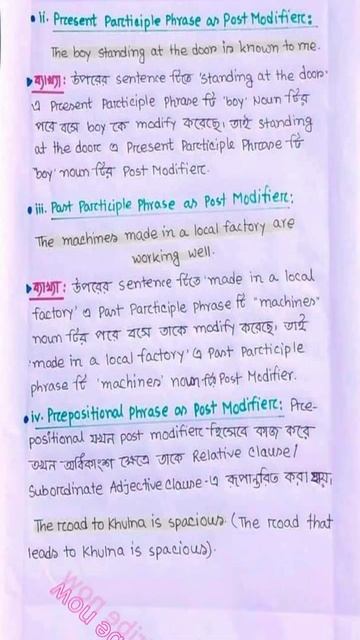 • ii. Present Participle Phrase as Post Modifier:
The boy standing at the door is known to me.
▸ ব্যাখ্যা: উপরের sentence টিতে 'standing at the door'
এ Present Participle Phrase টি 'boy' Noun টির
পরে বসে boy কে modify করেছে। তাই standing
at the door এ Present Participle Phrase টি
'boy' noun টির Post Modifier.
• iii. Past Participle Phrase as Post Modifier:
The machines made in a local factory are
working well.
▸ ব্যাখ্যা: উপরের sentence টিতে 'made in a local
factory' এ Past Participle Phrase টি "machines"
noun টির পরে বসে তাকে modify করেছে, তাই
'made in a local factory' এ Past Participle
phrase টি 'machines' noun টির Post Modifier.
• iv. Prepositional Phrase as Post Modifier: Pre-
positional যখন post modifier হিসেবে কাজ করে
তখন অধিকাংশ ক্ষেত্রে তাকে Relative Clause/
Subordinate Adjective Clause-এ রূপান্তরিত করা যায়।
The road to Khulna is spacious. (The road that
leads to Khulna is spacious).